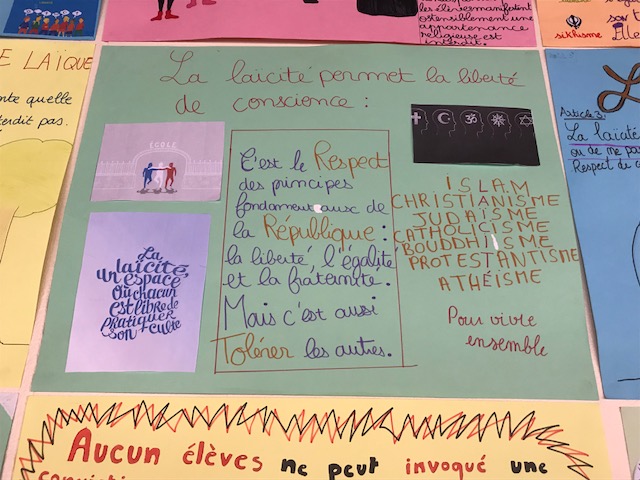 les élèves manifestent
ostensiblement une
appartenance
religieuse est
interdit.
sikhisme
son
Elle
E LAÏQUE
nte quelle
terdit pas.
La laïcité permet la liberté
de conscience :
ÉCOLE
C'est le Respect
des principes
fondamentaux de
la République :
la liberté l'égalité
et la fraternité.
Mais c'est aussi
Tolérer les autres.
La
laïcité,
un espace
où chacun
est libre de
pratiquer
son culte
ISLAM
CHRISTIANISME
JUDAÏSME
CATHOLICISME
BOUDDHISME
PROTESTANTISME
ATHÉISME
Pour vivre
ensemble
Article 3:
La laïcité
ou de me pa
Respect de c
Aucun élèves ne peut invoqué une